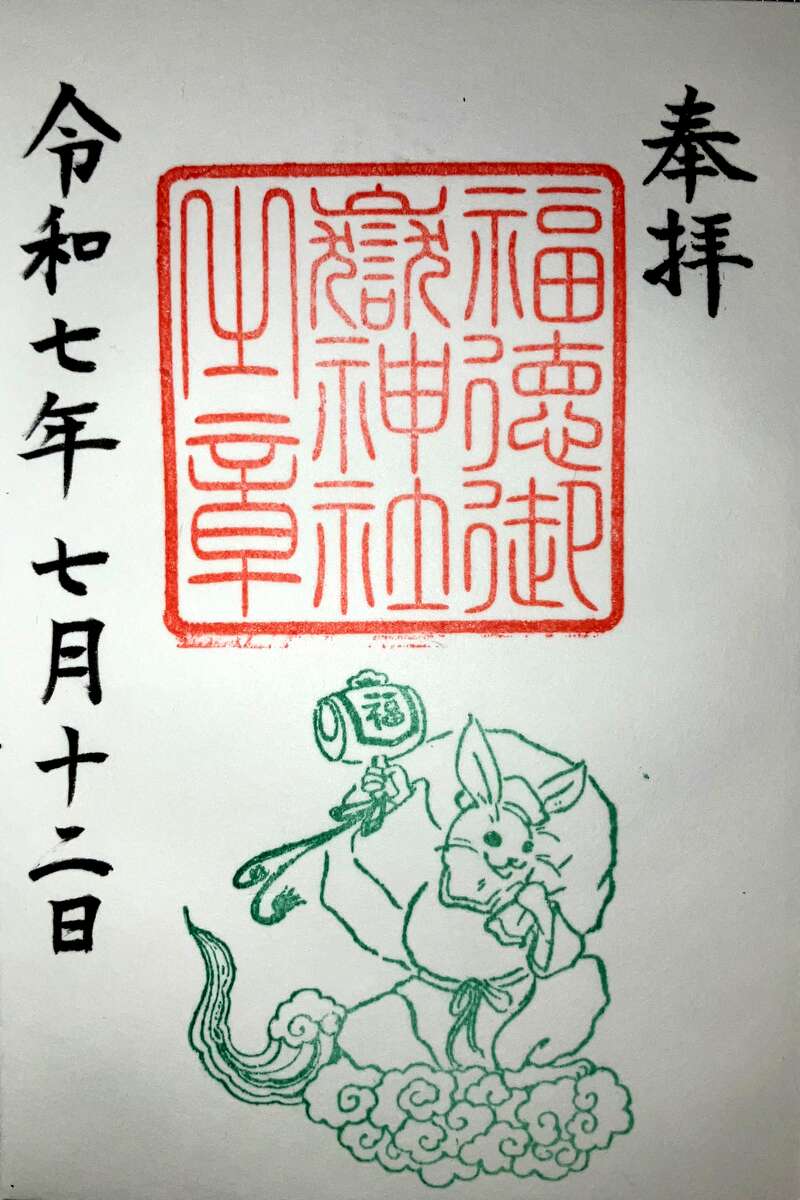 奉拝
福徳御
嶽神社
之章
福
令和七年七月十二日